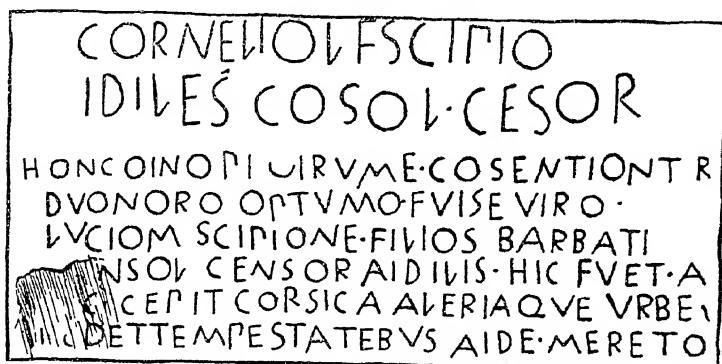 CORNELIO L F SCIPIO
IDILES COSOL·CESOR
HONC OINO PLOIRVME·COSENTIONT R
DVONORO OPTVMO·FVISE VIRO·
LVCIOM SCIPIONE·FILIOS BARBATI
NSOL CENSOR AIDILIS·HIC FVET·A
CEPIT CORSICA ALERIAQVE VRBE
DET TEMPESTATEBVS AIDE·MERETO